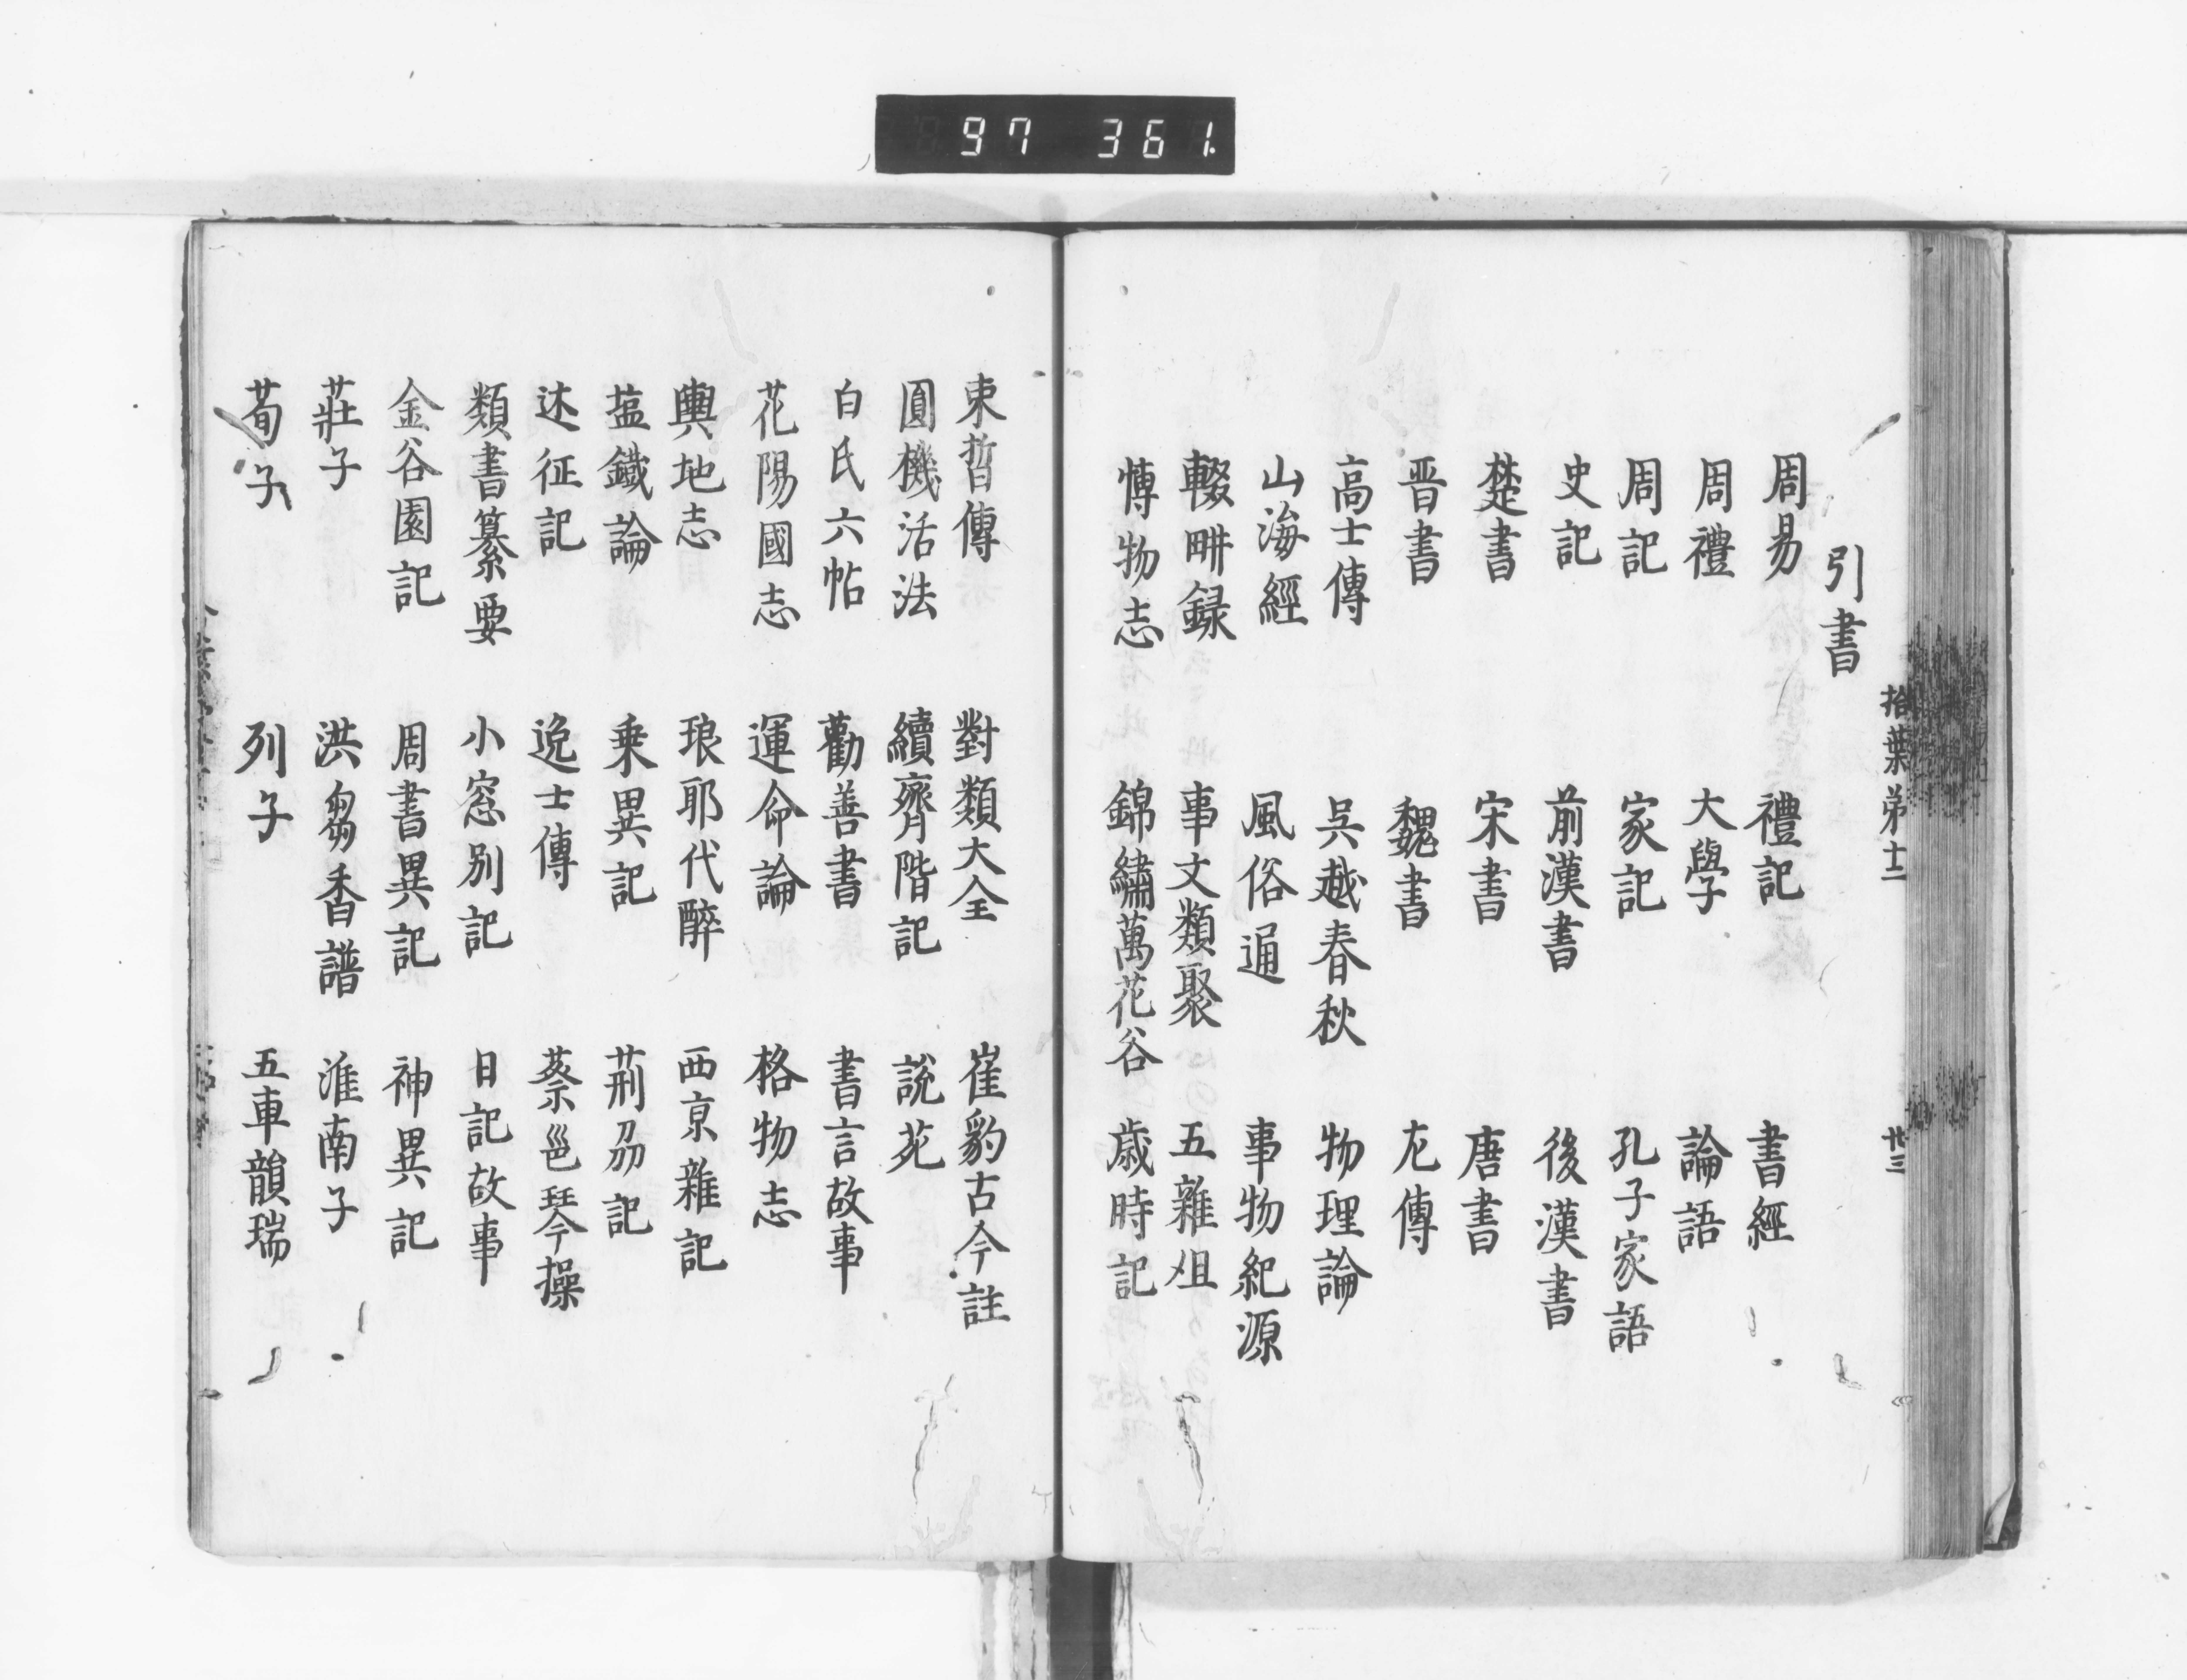 97 361.
拾葉弟十二 廿三
引書
周易 禮記 書經
周禮 大學 論語
周記 家記 孔子家語
史記 前漢書 後漢書
楚書 宋書 唐書
晋書 魏書 左傳
高士傳 呉越春秋 物理論
山海經 風俗通 事物紀源
輟畊録 事文類聚 五雜俎
愽物志 錦繡萬花谷 歳時記
束晳傳 對類大全 崔豹古今註
圓機活法 續齊階記 説苑
白氏六帖 勸善書 書言故事
花陽國志 運命論 格物志
輿地志 琅耶代醉 西京雜記
塩鐵論 乗異記 荊刕記
述征記 逸士傳 蔡邕琴操
類書纂要 小窓別記 日記故事
金谷園記 周書異記 神異記
莊子 洪芻香譜 淮南子
荀子 列子 五車韻瑞